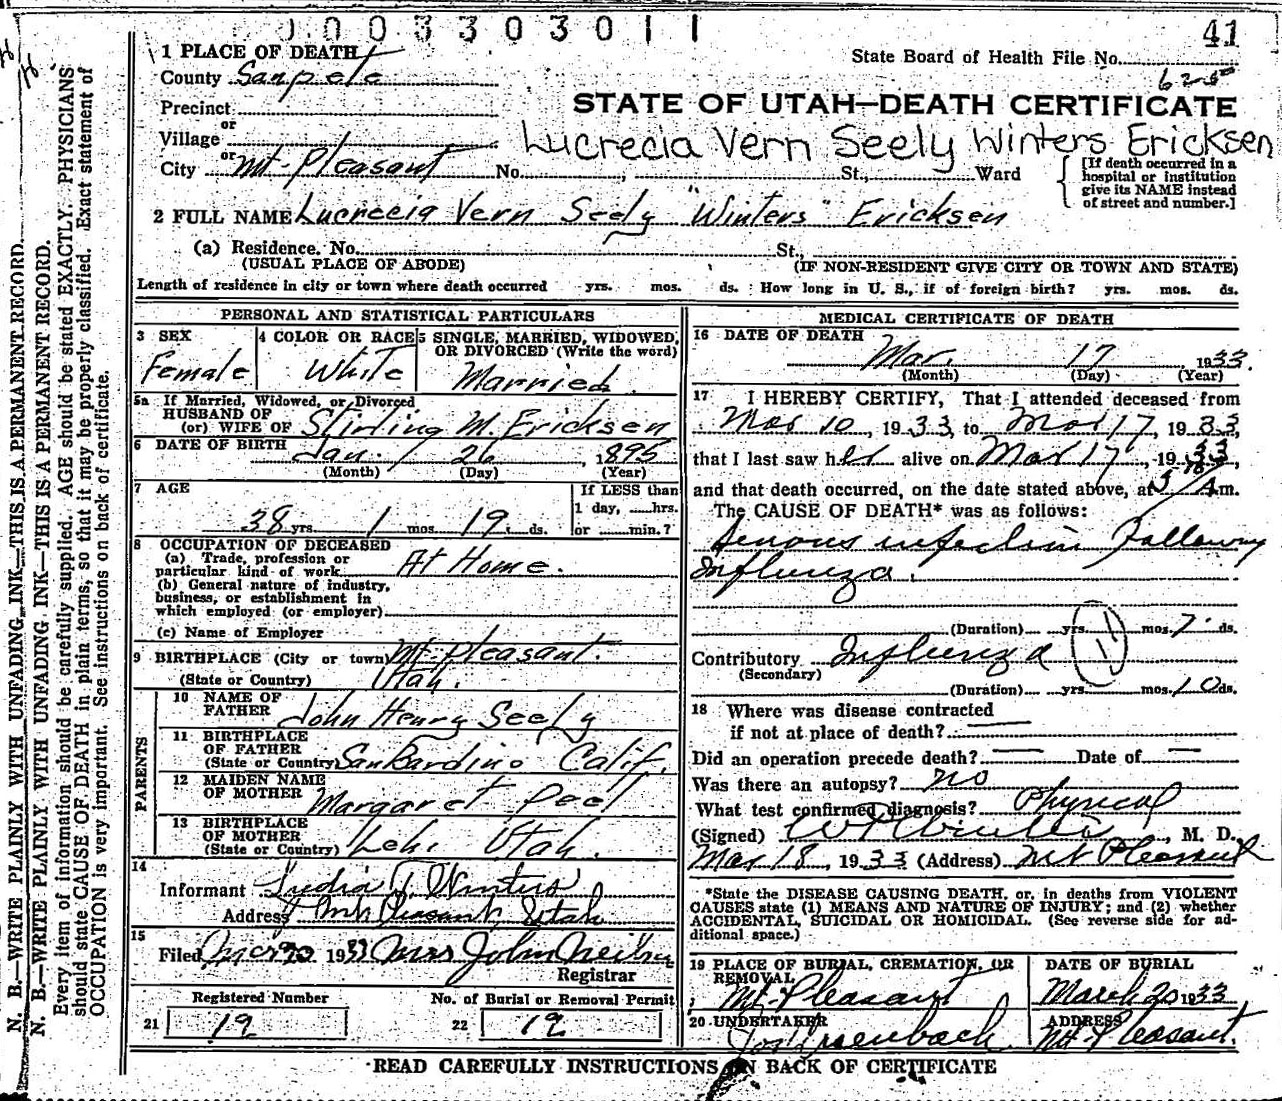 0003303011
41
1 PLACE OF DEATH
State Board of Health File No.
County Sanpete
Precinct
or
Village
or
City Mt-Pleasant No. , St., Ward
STATE OF UTAH—DEATH CERTIFICATE
Lucrecia Vern Seely Winters Ericksen
[If death occurred in a
hospital or institution
give its NAME instead
of street and number.]
2 FULL NAME Lucrecia Vern Seely "Winters" Ericksen
(a) Residence. No. St.,
(USUAL PLACE OF ABODE) (IF NON-RESIDENT GIVE CITY OR TOWN AND STATE)
Length of residence in city or town where death occurred yrs. mos. ds. How long in U. S., if of foreign birth? yrs. mos. ds.
PERSONAL AND STATISTICAL PARTICULARS
3 SEX
Female
4 COLOR OR RACE
White
5 SINGLE, MARRIED, WIDOWED,
OR DIVORCED (Write the word)
Married
5a If Married, Widowed, or Divorced
HUSBAND OF
(or) WIFE OF Stirling M. Ericksen
6 DATE OF BIRTH
Jan. 26, 1895
(Month) (Day) (Year)
7 AGE
38 yrs. 1 mos. 19 ds.
If LESS than
1 day, hrs.
or min.?
8 OCCUPATION OF DECEASED
(a) Trade, profession or
particular kind of work At Home.
(b) General nature of industry,
business, or establishment in
which employed (or employer)
(c) Name of Employer
9 BIRTHPLACE (City or town) Mt-Pleasant.
(State or Country) Utah.
PARENTS
10 NAME OF
FATHER John Henry Seely
11 BIRTHPLACE
OF FATHER
(State or Country) San Bardino Calif.
12 MAIDEN NAME
OF MOTHER Margaret Peel
13 BIRTHPLACE
OF MOTHER
(State or Country) Lehi Utah.
14
Informant Winters
Address Mt Pleasant Utah
15
Filed 20 1933 Mrs John
Registrar
Registered Number
21 19
No. of Burial or Removal Permit
22 19
MEDICAL CERTIFICATE OF DEATH
16 DATE OF DEATH
Mar. 17 1933.
(Month) (Day) (Year)
17 I HEREBY CERTIFY, That I attended deceased from
Mar 10, 1933, to Mar 17, 1933,
that I last saw her alive on Mar 17, 1933,
and that death occurred, on the date stated above, at 5 A m.
The CAUSE OF DEATH* was as follows:
infection Following
Influenza.
(Duration) yrs. mos. 7. ds.
Contributory Influenza
(Secondary)
11
(Duration) yrs. mos. 10 ds.
18 Where was disease contracted
if not at place of death?
Did an operation precede death? — Date of —
Was there an autopsy? no
What test confirmed diagnosis? Physical
(Signed) , M. D.
Mar 18, 1933 (Address) Mt Pleasant
*State the DISEASE CAUSING DEATH, or, in deaths from VIOLENT
CAUSES state (1) MEANS AND NATURE OF INJURY; and (2) whether
ACCIDENTAL, SUICIDAL OR HOMICIDAL. (See reverse side for ad-
ditional space.)
19 PLACE OF BURIAL, CREMATION, OR
REMOVAL
Mt-Pleasant
DATE OF BURIAL
March 20 1933
20 UNDERTAKER
ADDRESS
Mt-Pleasant.
READ CAREFULLY INSTRUCTIONS ON BACK OF CERTIFICATE
N. B.—WRITE PLAINLY WITH UNFADING INK—THIS IS A PERMANENT RECORD.
N. B.—WRITE PLAINLY WITH UNFADING INK—THIS IS A PERMANENT RECORD.
Every item of information should be carefully supplied. AGE should be stated EXACTLY. PHYSICIANS
should state CAUSE OF DEATH in plain terms, so that it may be properly classified. Exact statement of
OCCUPATION is very important. See instructions on back of certificate.